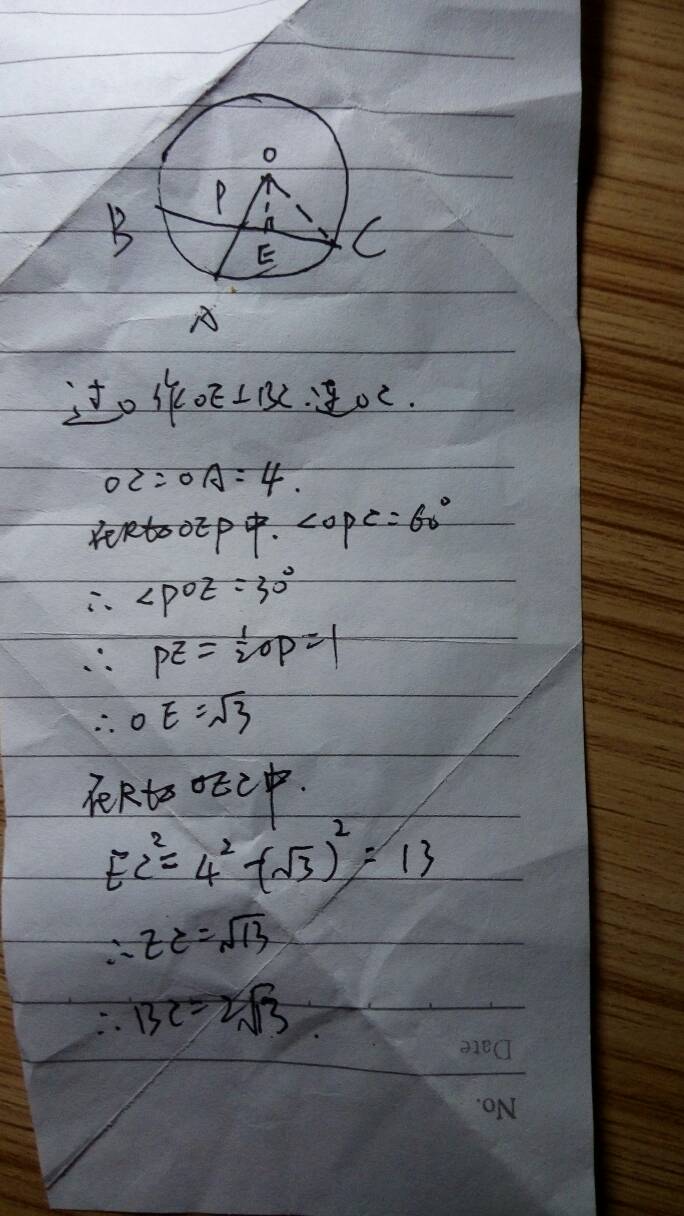 O
P
B
E
C
A
过O作OE⊥BC.连OC.
OC=OA=4.
在Rt△OEP中.∠OPC=60°
∴∠POE=30°
∴PE=½OP=1
∴OE=√3
在Rt△OEC中.
EC²=4²-(√3)²=13
∴EC=√13
∴BC=2√13.
Date
No.